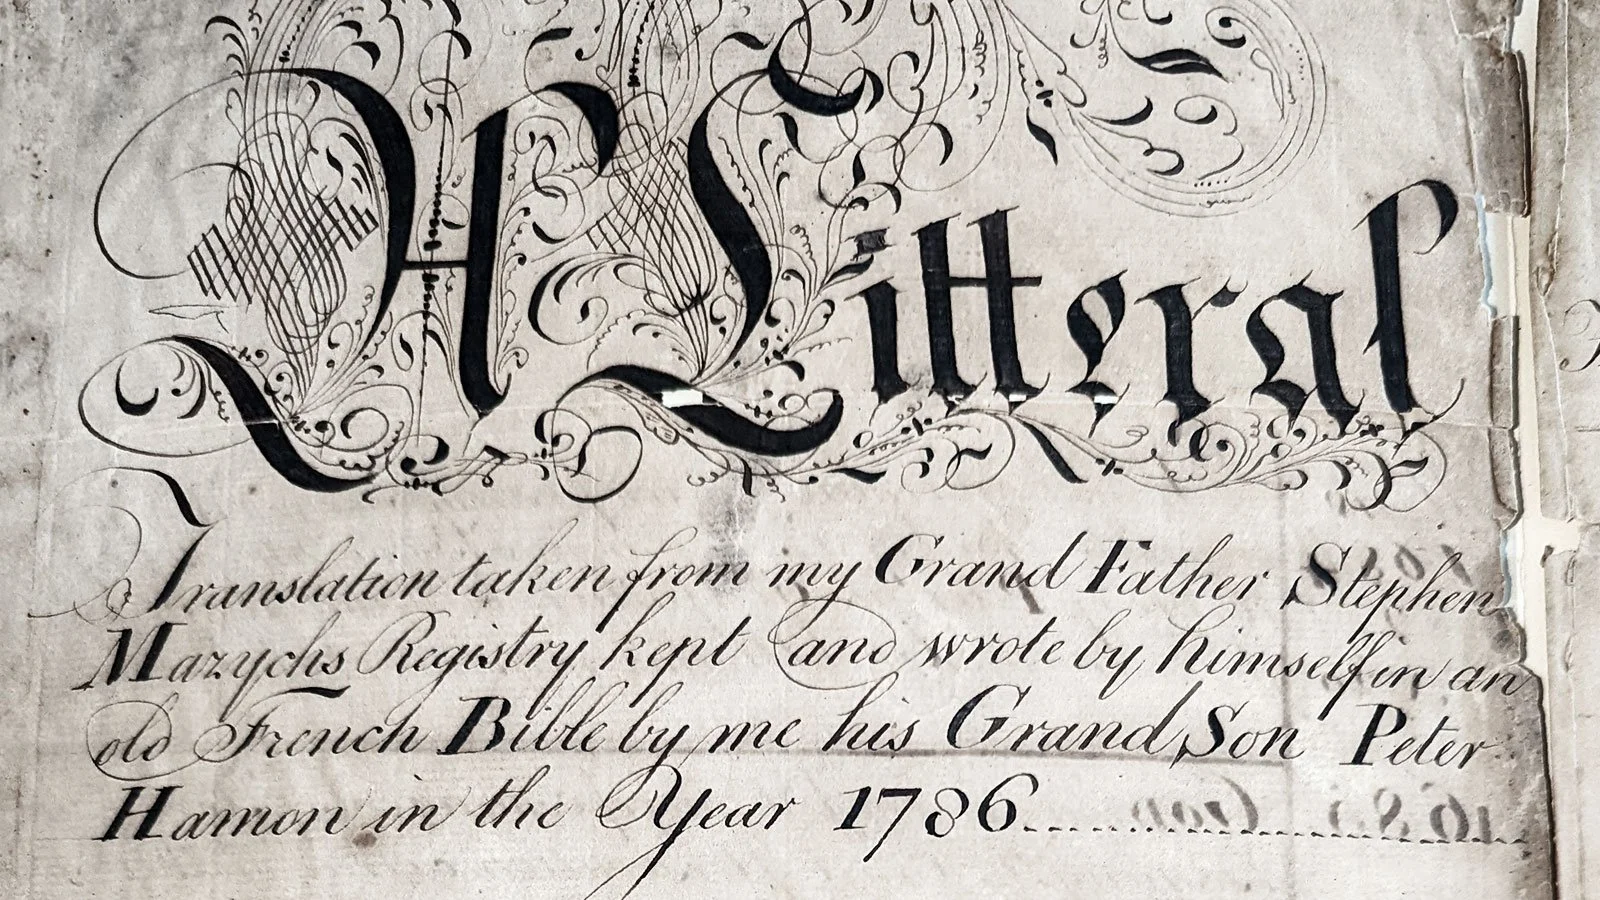 A Litteral
Translation taken from my Grand Father Stephen
Mazychs Registry kept and wrote by himself in an
old French Bible by me his Grand Son Peter
Hamon in the Year 1786